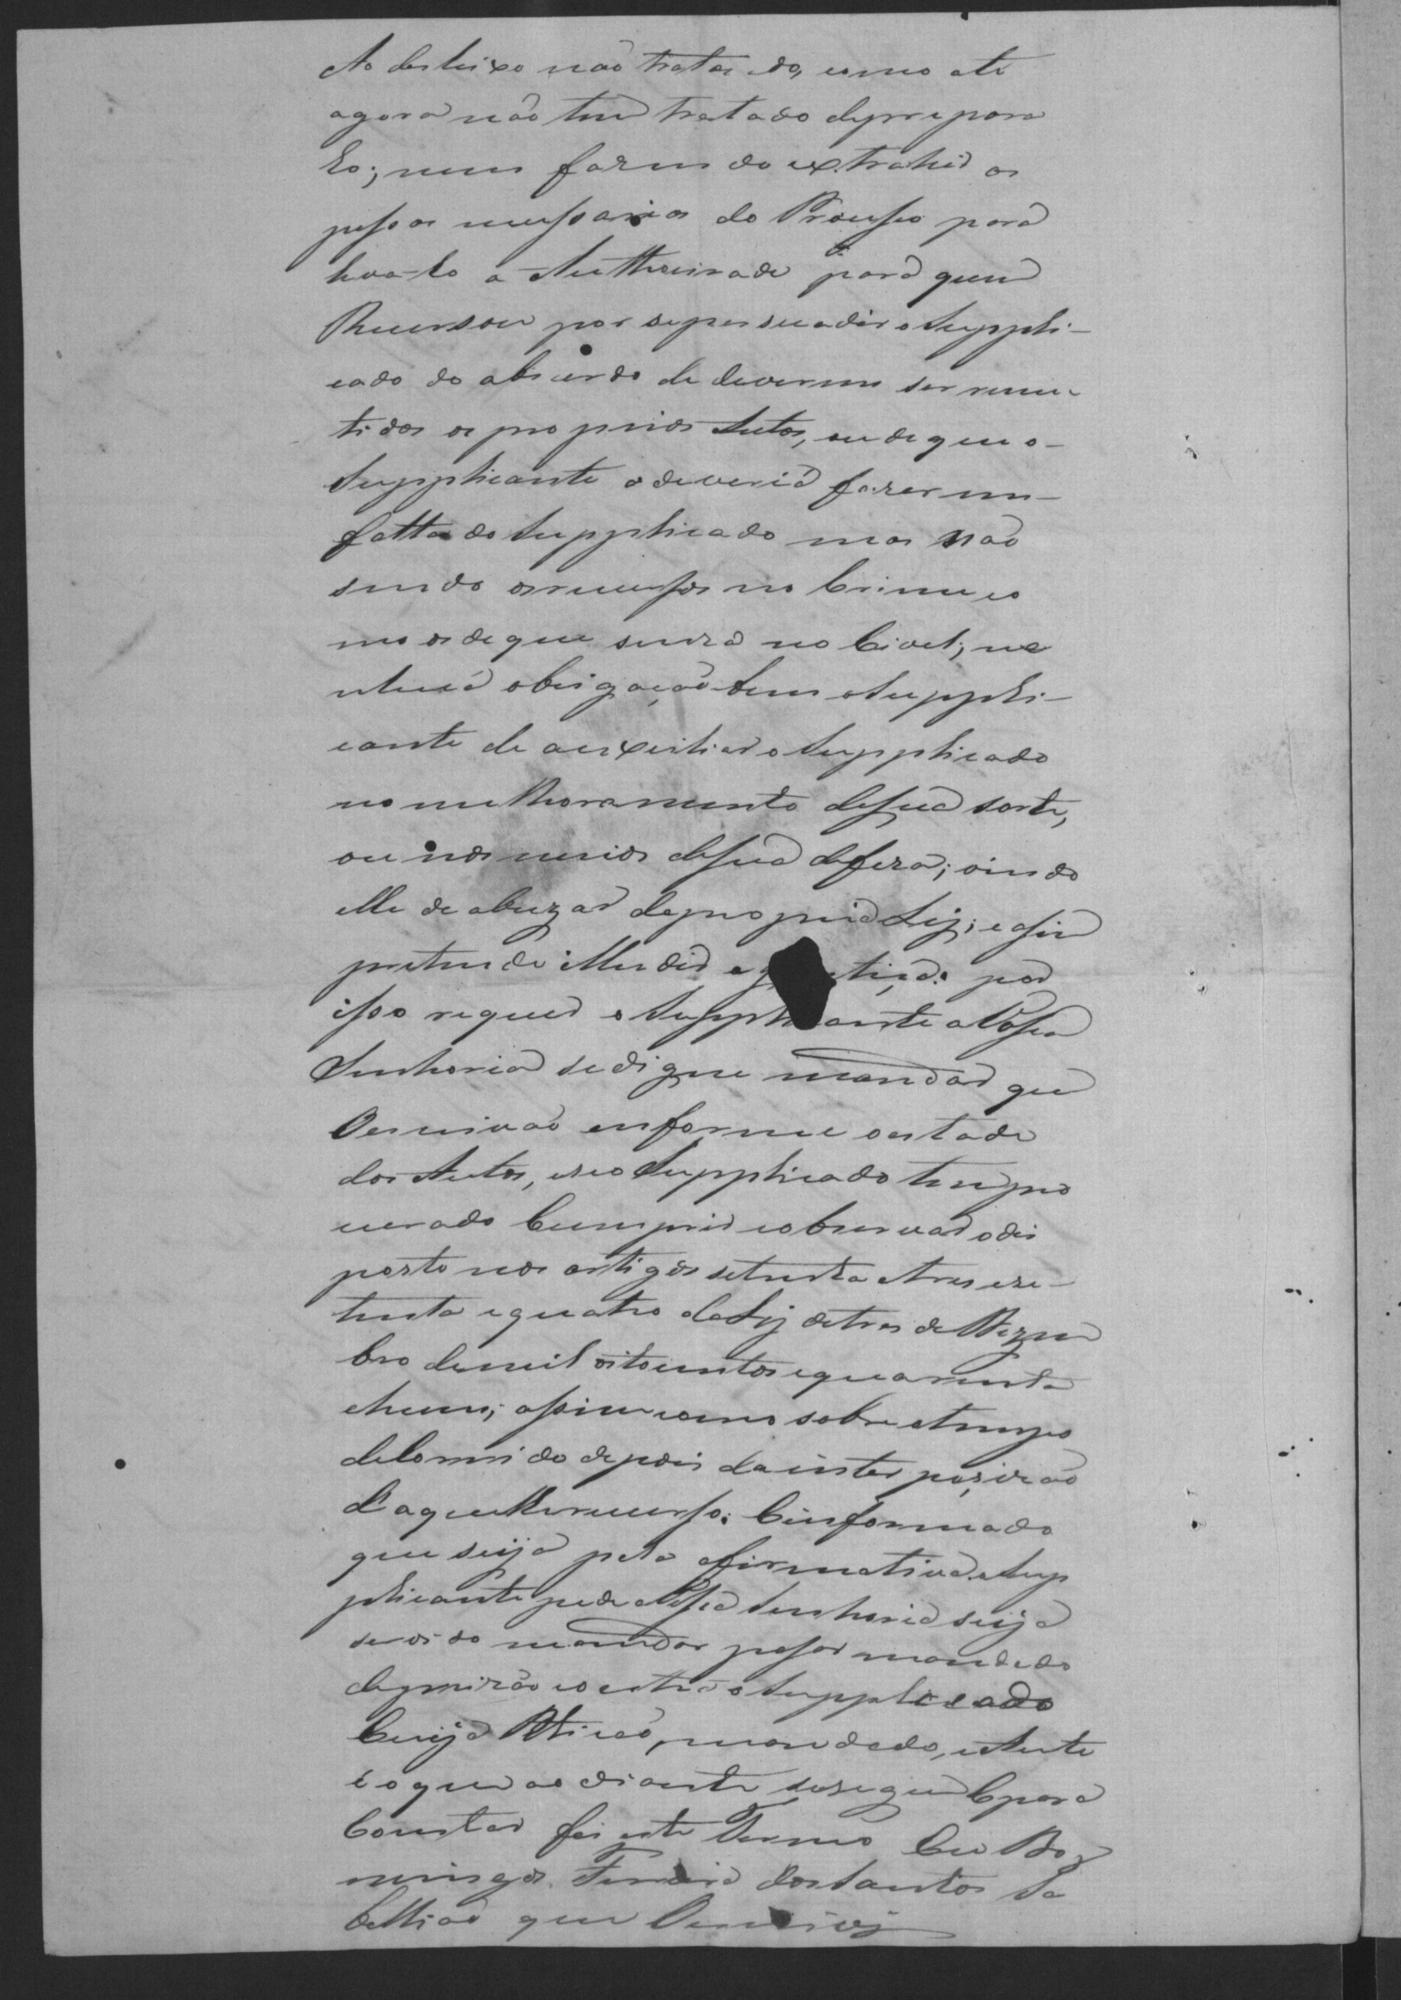 Ao desleixo não tratando, como até
agora não tem tratado de prepara
lo; nem fazendo extrahir as
pessas necessarias do Processo para
leva-lo a Authoridade para quem
Recursou por se persuadir o Suppli-
cado do absurdo de deverem ser reme-
tidos os proprios Autos, ou de que o
Supplicante o deveria fazer em
falta do Supplicado mas não
sendo os recursos no Crime co
mo os de que se uza no Civel; ne
nhuã obrigação tem o Suppli-
cante de auxiliar o Supplicado
no melhoramento de sua sorte,
ou nos meios de sua defeza; vindo
elle de abuzar da propria Lej; e assim
pretende illudir a justiça: por
isso requer o Supplicante a Vossa
Senhoria se digne mandar que
Oescrivão enforme o estado
dos Autos, e se o Supplicado tem pro
curado Cumprir e observar o dis
posto nos artigos setenta e tres e se-
tenta e quatro da Lej de tres de Dezem
bro de mil oitocentos e quarenta
e hum; assim como sobre o tempo
decorrido depois da interposição
d'aquelle recurso: E informado
que seija pela afirmativa o Sup
plicante pede a Vossa Senhoria seija
servido mandar passar mandado
de prizão contra o Supplicado
Cuija Petição, mandado, e Auto
é o que ao diante se segue E para
Constar fis este Termo Eu Do
mingos Ferreira dos Santos Ta
bellião que Oescrivij